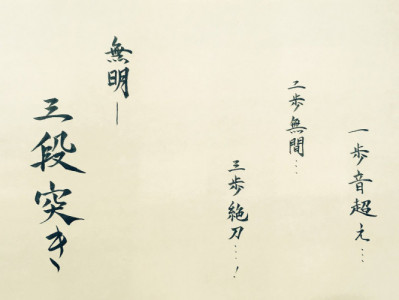 一歩音超え…
二歩無間…
三歩絶刀…！
無明―
三段突き